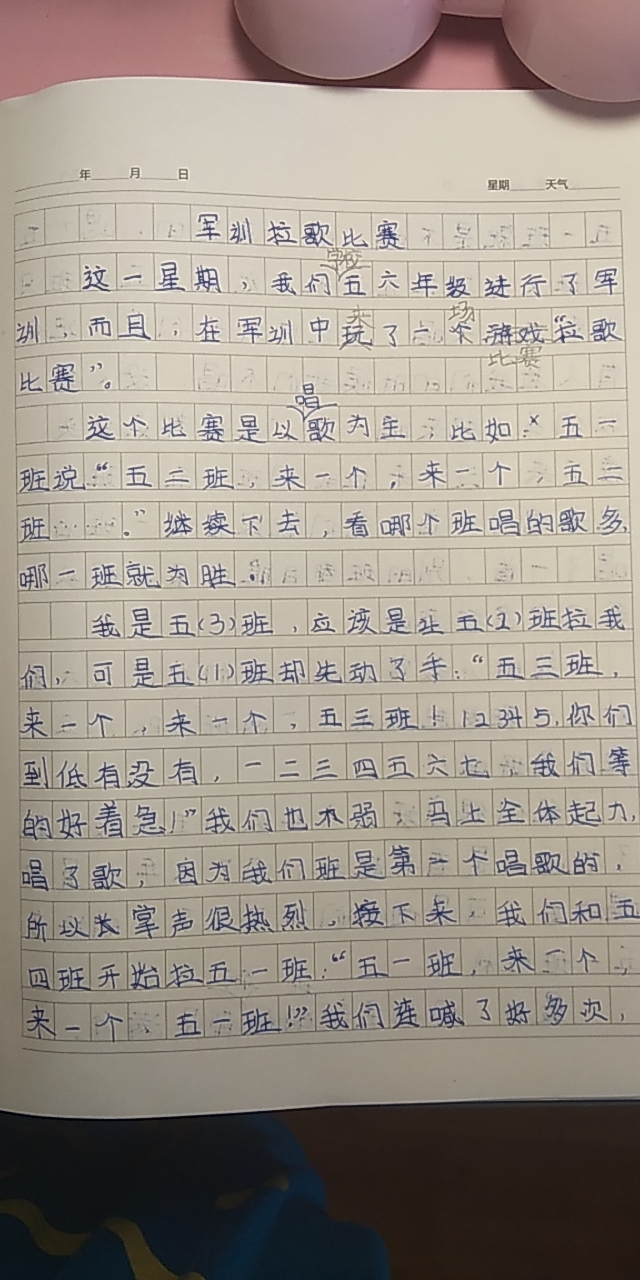 年 月 日
星期 天气
军训拉歌比赛
学校
这一星期,我们五六年级进行了军
来 场
训,而且,在军训中玩了一个游戏“拉歌
比赛
比赛”。
唱
这个比赛是以歌为主,比如:“五一
班说“五三班,来一个,来一个,五三
班……。”继续下去,看哪个班唱的歌多,
哪一班就为胜。
我是五(3)班,应该是让五(2)班拉我
们,可是五(1)班却先动了手:“五三班,
来一个,来一个,五三班!12345,你们
到低有没有,一二三四五六七,我们等
的好着急!”我们也不弱,马上全体起力,
唱了歌,因为我们班是第一个唱歌的,
所以长掌声很热烈,接下来,我们和五
四班开始拉五一班:“五一班,来一个,
来一个,五一班!”我们连喊了好多次,